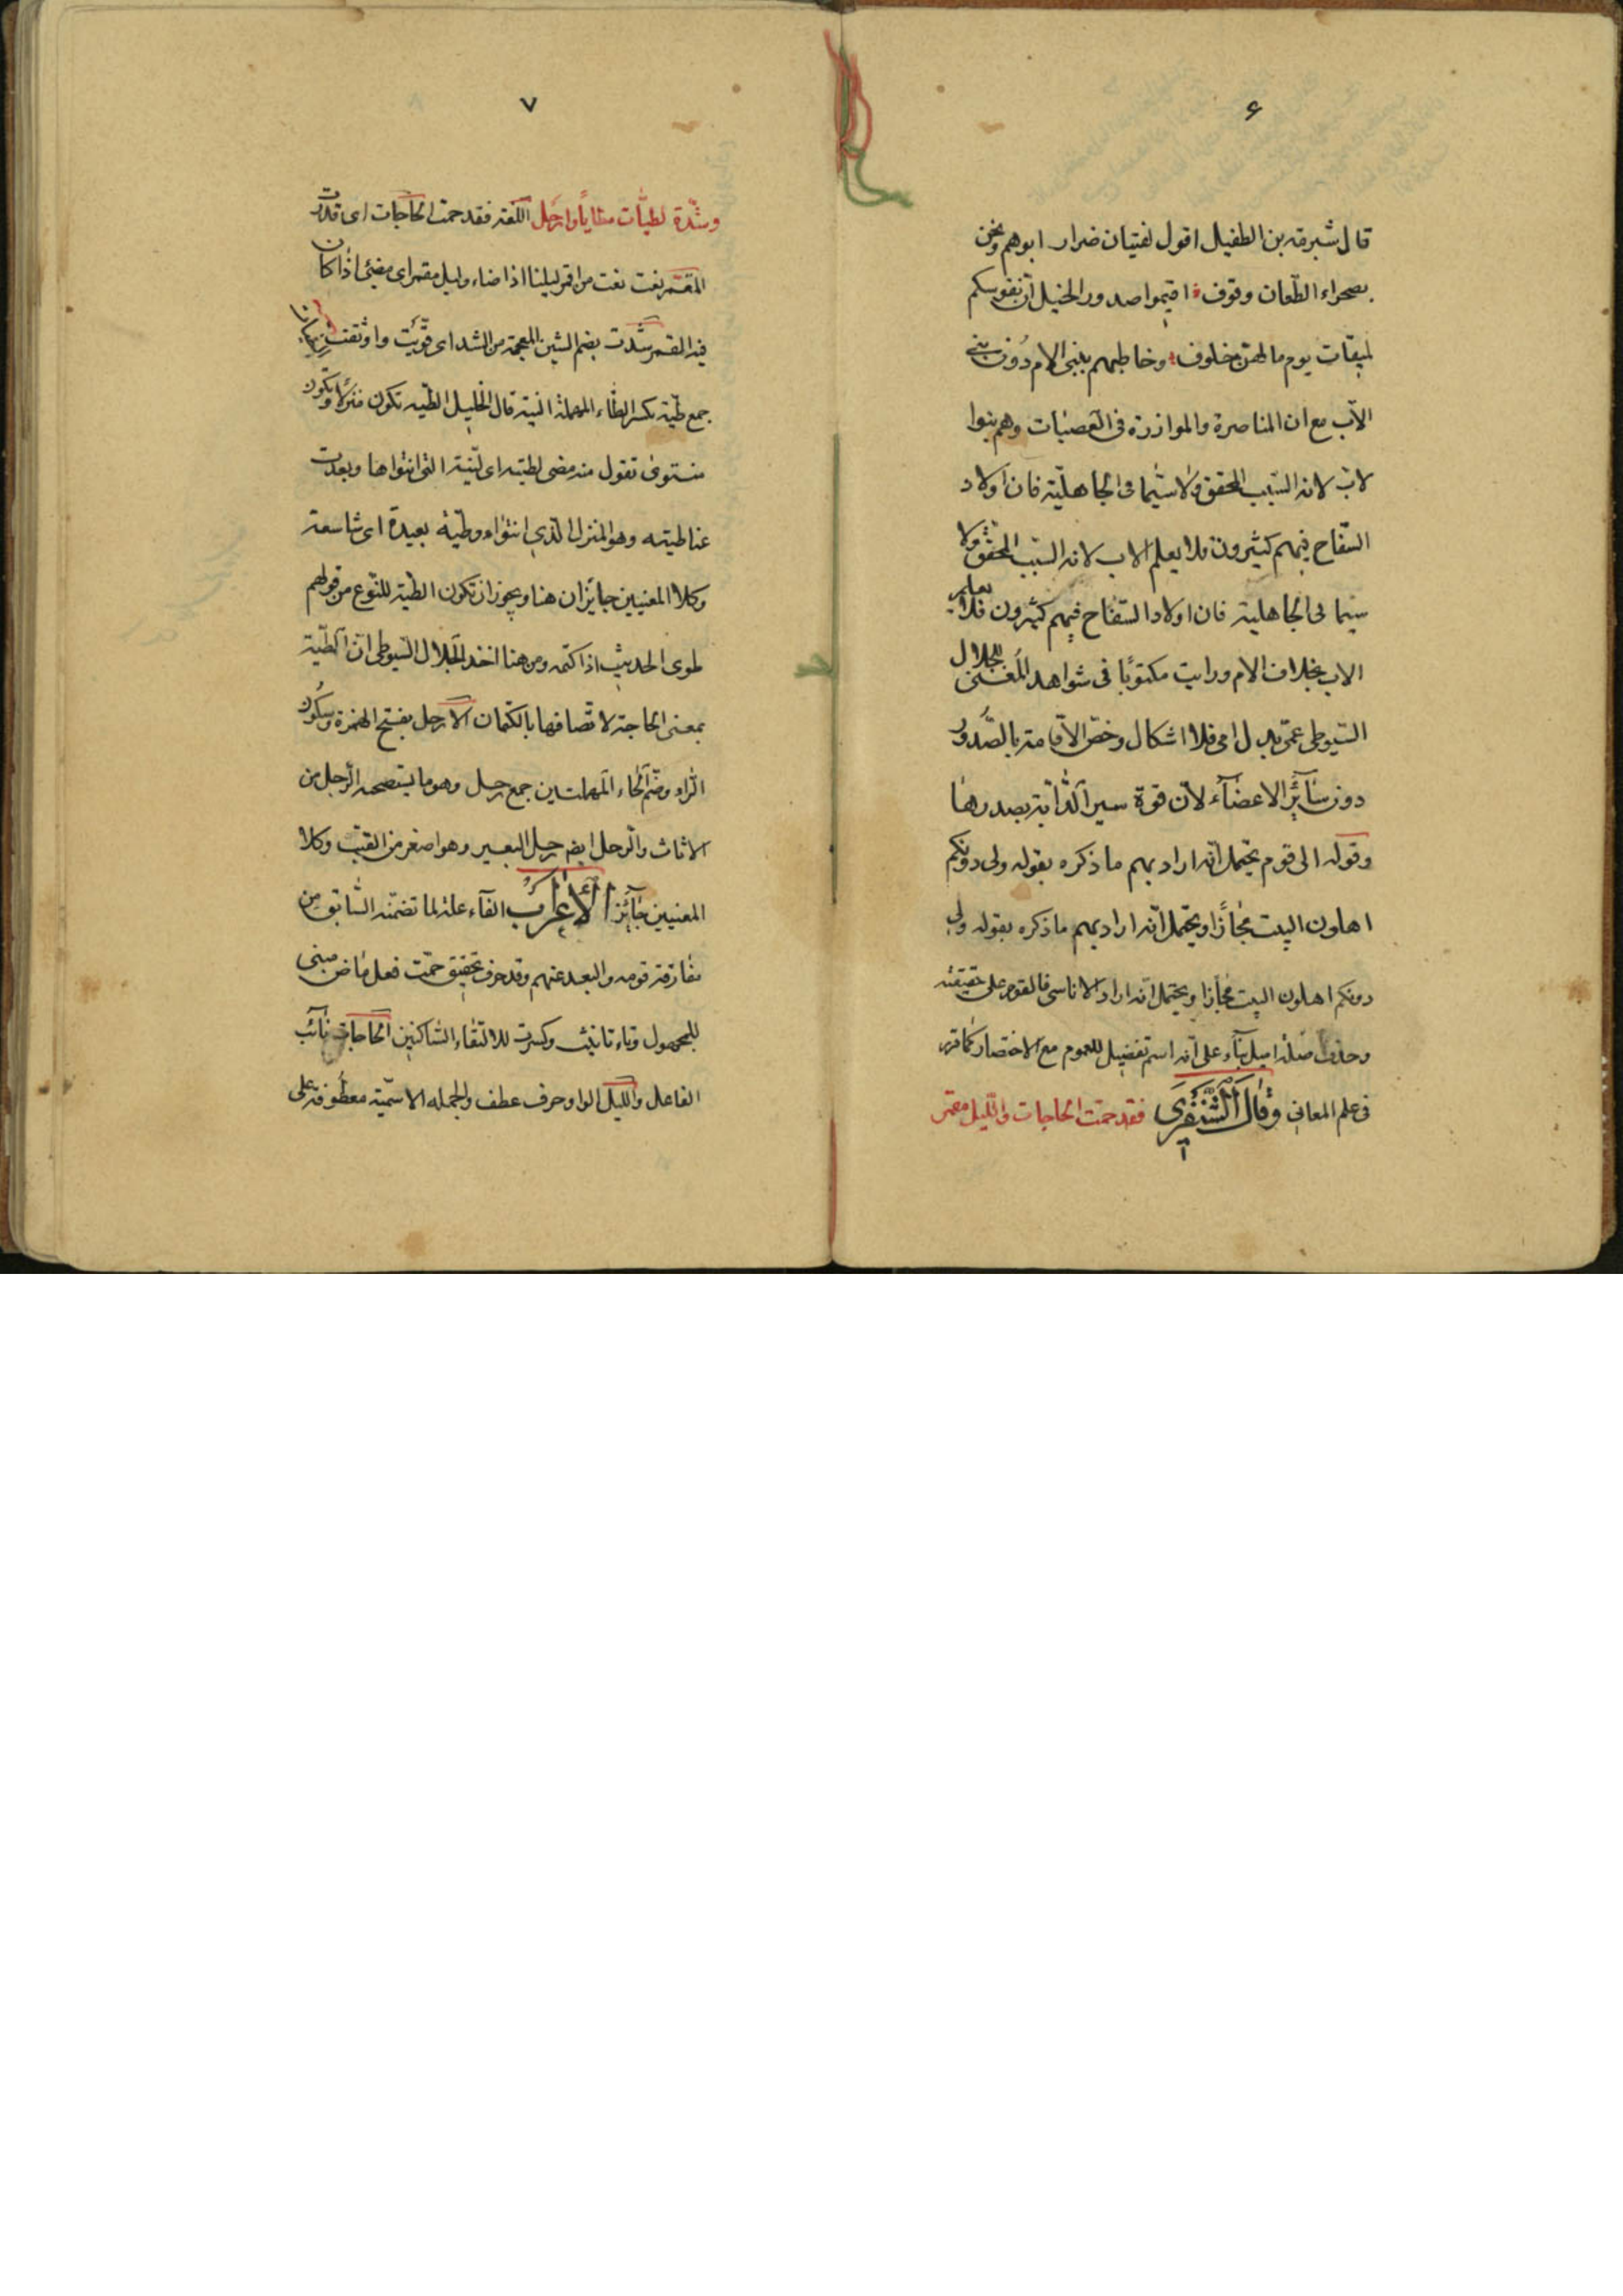 ۶
قال شبرمة بن الطفيل اقول لفتيان ضرار ابوهم ونحن
بصحراء الطّعان وقوف اقيموا صدور الخيل انّ نفوسكم
لميقات يوم ما لهنّ خلوف وخاطبهم ببنى الام دون بنى
الاب مع ان المناصرة والموازرة فى العصبات وهم بنوا
لاب لانه السّبب المحقق ولا سيّما فى الجاهليّة فان اولاد
السّفاح فيهم كثيرون فلا يعلم الاب لانه السّبب المحقق ولا
سيّما فى الجاهلية فان اولاد السّفاح فيهم كثيرون فلا يعلم
الاب بخلاف الام ورايت مكتوبًا فى شواهد المغنى للجلال
السّيوطى عمّى بدل امى فلا اشكال وخصّ الاقامة بالصّدور
دون سائر الاعضآء لانّ قوة سير الدّابّة بصدرها
وقوله الى قوم يحتمل انّه اراد بهم ما ذكره بقوله ولى دونكم
اهلون البيت مجازًا ويحتمل انّه اراد بهم ما ذكره بقوله ولى
دونكم اهلون البيت مجازا ويحتمل انّه اراد الاناسى فالقوم على حقيقته
وحذف صلة اميل بنآء على انّه اسم تفضيل للعموم مع الاختصار كما قرر
فى علم المعانى وقال الشّنفرى فقد حمّت الحاجات واللّيل مقمر
۷
وشدّة لطيّات مطايًا وارحل اللّغة فقد حمت الحاجات اى قدّرت
المقمر نعت نعت من اقمر ليلنا اذا ضاء وليل مقمر اى مضئ اذا كان
فيه القمر شدّت بضم الشين المعجمة من الشد اى قوّيت واوثقت
جمع طيّة بكسر الطّاء المهملة النية قال الخليل الطّيه تكون منزلًا وتكون
منتوى تقول منه مضى لطيته اى لنيّته التى انتواها وبعدت
عنا طيته وهو المنزل الّذى انتواه وطيّة بعيدة اى شاسعة
وكلا المعنيين جايزان هنا ويجوز ان تكون الطّية للنّوع من قولهم
طوى الحديث اذا كتمه ومن هنا اخذ الجلال السّيوطى انّ الطّيّة
بمعنى الحاجة لاتّصافها بالكتمان الارحل بفتح الهمزة وسكون
الرّاء وضمّ الحاء المهملتين جمع رحل وهو ما يستصحبه الرّجل من
الاثاث والرحل ايضا رحل البعير وهو اصغر من القتب وكلا
المعنيين جآئز الاعراب الفآء علة لما تضمّنه السّابق من
مفارقة قومه والبعد عنهم وقد حرف تحقيق حمّت فعل ماض مبنى
للمجهول وتاء تانيث وكسرت للالتقاء السّاكنين الحاجات نآئب
الفاعل واللّيل الواو حرف عطف والجمله الاسميّة معطوفة على